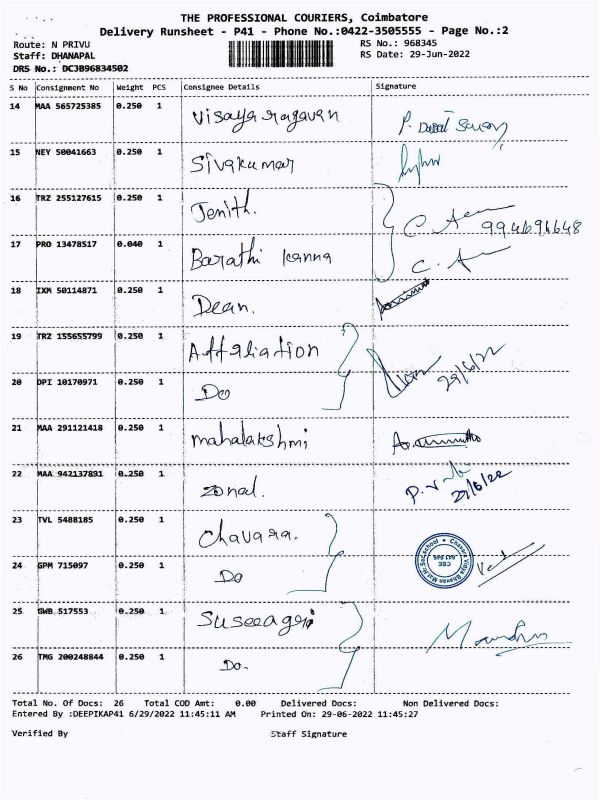 THE PROFESSIONAL COURIERS, Coimbatore
Delivery Runsheet - P41 - Phone No.:0422-3505555 - Page No.:2
Route: N PRIVU RS No.: 968345
Staff: DHANAPAL RS Date: 29-Jun-2022
DRS No.: DC3B96834502
S No Consignment No Weight PCS Consignee Details Signature
14 MAA 565725385 0.250 1 Visaya ragavan
15 NEY 50041663 0.250 1 Sivakumar
16 TRZ 255127615 0.250 1 Jenith.
17 PRO 13478517 0.040 1 Barathi kanna
18 IXM 50114871 0.250 1 Dean.
19 TRZ 155655799 0.250 1 Affaliation
20 DPI 10170971 0.250 1 Do 29/6/22
21 MAA 291121418 0.250 1 mahalakshmi
22 MAA 942137891 0.250 1 zonal. 29/6/22
23 TVL 5488185 0.250 1 Chavara.
24 GPM 715097 0.250 1 Do
25 GWB 517553 0.250 1 Suseeagri
26 TMG 200248844 0.250 1 Do.
Total No. Of Docs: 26 Total COD Amt: 0.00 Delivered Docs: Non Delivered Docs:
Entered By :DEEPIKAP41 6/29/2022 11:45:11 AM Printed On: 29-06-2022 11:45:27
Verified By Staff Signature